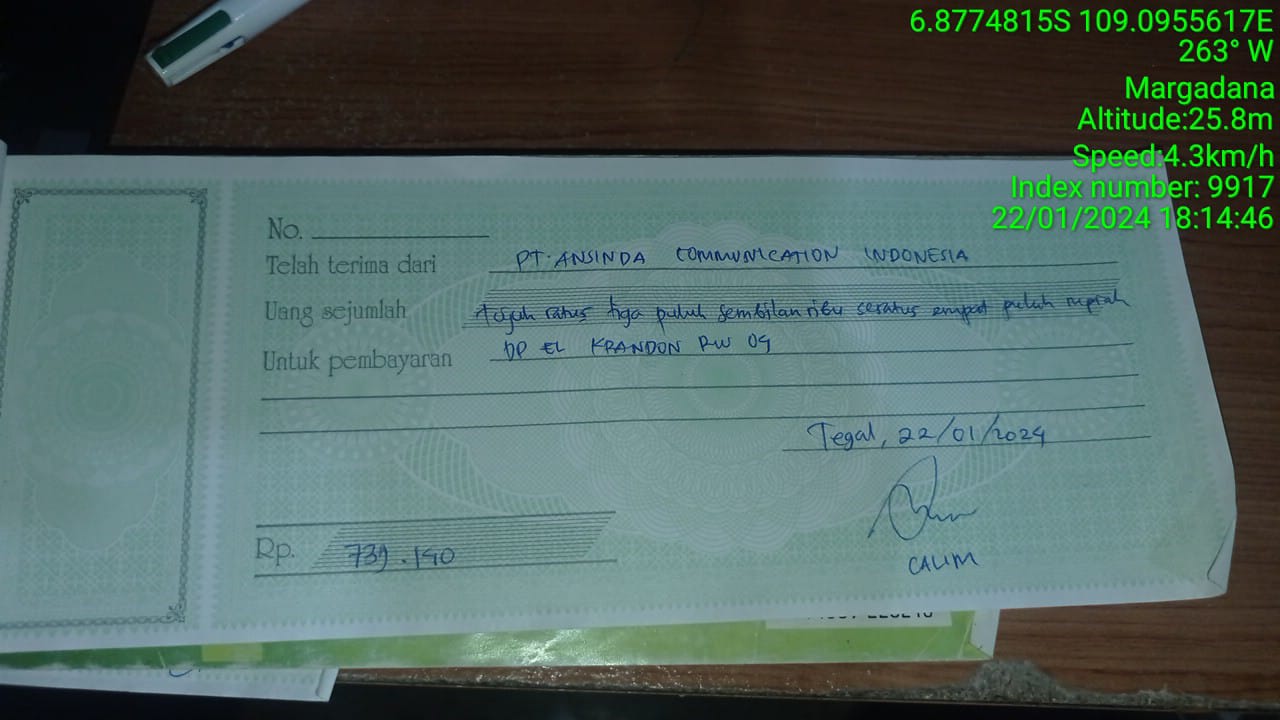 6.8774815S 109.0955617E
263° W
Margadana
Altitude:25.8m
Speed:4.3km/h
Index number: 9917
22/01/2024 18:14:46
No.
Telah terima dari PT. ANSINDA COMMUNICATION INDONESIA
Uang sejumlah tujuh ratus tiga puluh sembilan ribu seratus empat puluh rupiah
Untuk pembayaran DP EL KRANDON RW 04
Tegal, 22/01/2024
Rp. 739.140
CALIM